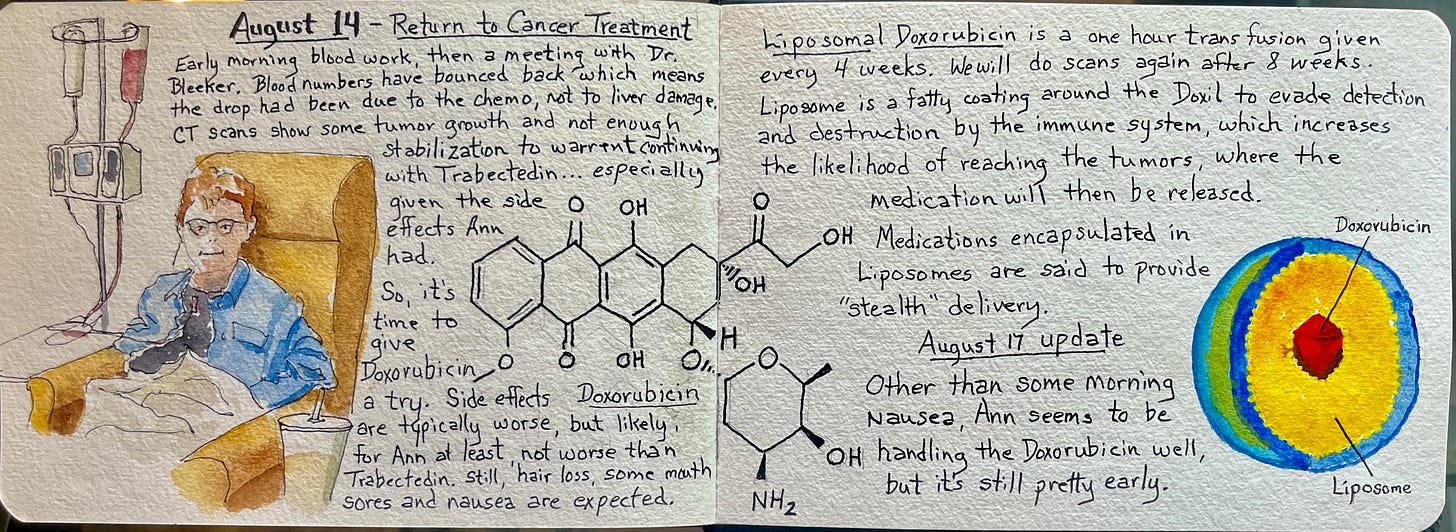 August 14 - Return to Cancer Treatment
Early morning blood work, then a meeting with Dr.
Bleeker. Blood numbers have bounced back which means
the drop had been due to the chemo, not to liver damage.
CT scans show some tumor growth and not enough
stabilization to warrent continuing
with Trabectedin... especially
given the side
effects Ann
had.
So, it's
time to
give
Doxorubicin
a try. Side effects
are typically worse, but likely,
for Ann at least, not worse than
Trabectedin. still, hair loss, some mouth
sores and nausea are expected.
O
OH
O
OH
OH
O
O
OH
O
H
Doxorubicin
O
OH
NH2
Liposomal Doxorubicin is a one hour transfusion given
every 4 weeks. We will do scans again after 8 weeks.
Liposome is a fatty coating around the Doxil to evade detection
and destruction by the immune system, which increases
the likelihood of reaching the tumors, where the
medication will then be released.
Medications encapsulated in
Liposomes are said to provide
"stealth" delivery.
August 17 update
Other than some morning
Nausea, Ann seems to be
handling the Doxorubicin well,
but it's still pretty early.
Doxorubicin
Liposome